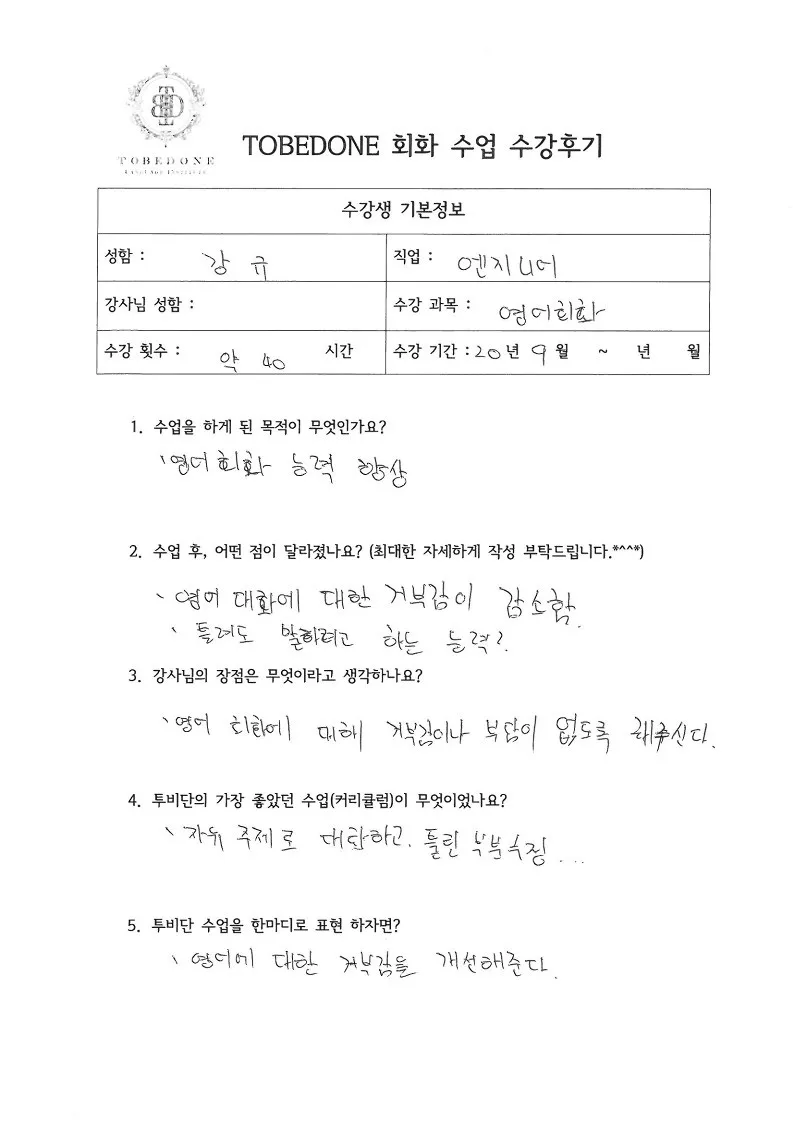 TOBEDONE
LANGUAGE INSTITUTE
TOBEDONE 회화 수업 수강후기
수강생 기본정보
성함 : 강 규
직업 : 엔지니어
강사님 성함 :
수강 과목 : 영어회화
수강 횟수 : 약 40 시간
수강 기간 : 20 년 9 월 ~ 년 월
1. 수업을 하게 된 목적이 무엇인가요?
영어회화 능력 향상
2. 수업 후, 어떤 점이 달라졌나요? (최대한 자세하게 작성 부탁드립니다.*^^*)
영어 대화에 대한 거부감이 감소함.
틀려도 말하려고 하는 능력?
3. 강사님의 장점은 무엇이라고 생각하나요?
영어 회화에 거부감이나 부담이 없도록 해주신다.
4. 투비단의 가장 좋았던 수업(커리큘럼)이 무엇이었나요?
자유 주제로 대화하고, 틀린 부분 수정...
5. 투비단 수업을 한마디로 표현 하자면?
영어에 대한 거부감을 개선해준다.